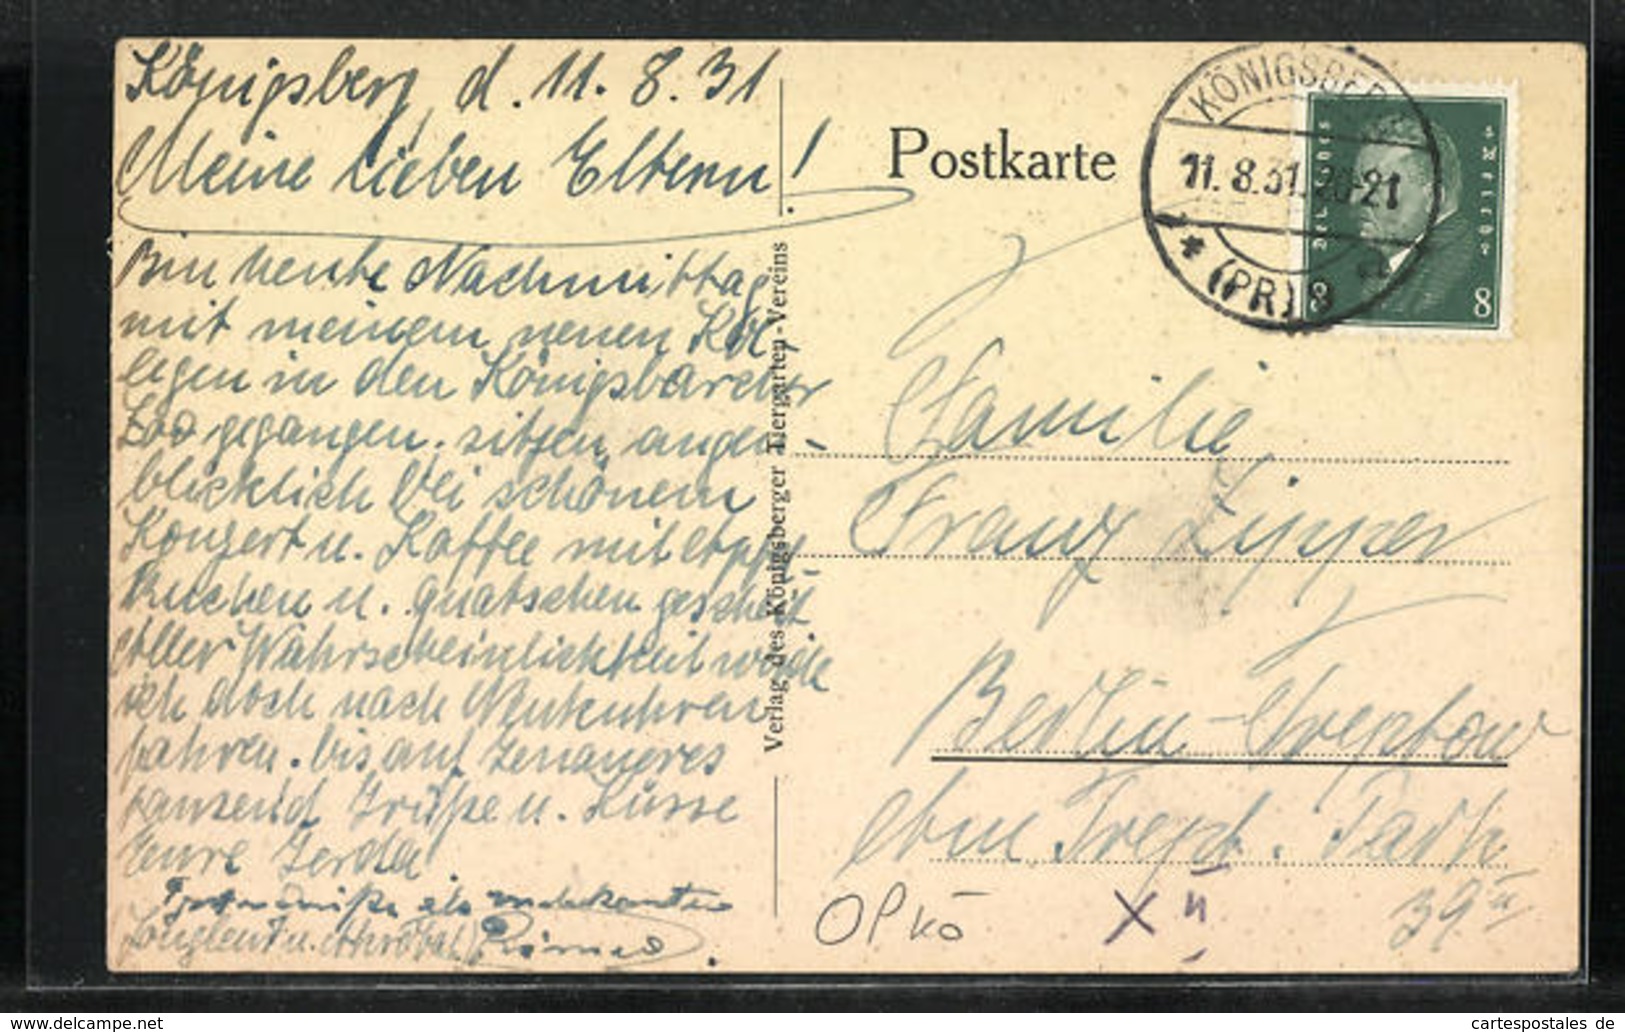 Königsberg, d. 11.8.31
Meine lieben Eltern!
Bin heute Nachmittag
mit meinem neuen Kol-
legen in den Königsbercher
Zoo gegangen. sitzen augen-
blicklich bei schönem
Konzert u. Kaffee mit
Kuchen u. quatschen gescheit
Aller Wahrscheinlichkeit werde
ich doch nach Neukuhren
fahren. bis auf Genaueres
tausend Grüße u. Küsse
Eure Gerda
als unbekannter
Jonglent u. Akrobat
Verlag des Königsberger Tiergarten-Vereins
Postkarte
KÖNIGSBERG
11.8.31. 20-21
* (PR) 8 a
Deutsches Reich
8 8
Familie
Franz Lipper
Berlin-Treptow
am Trept. Park
39 II
OPKö
X II
cartespostales de